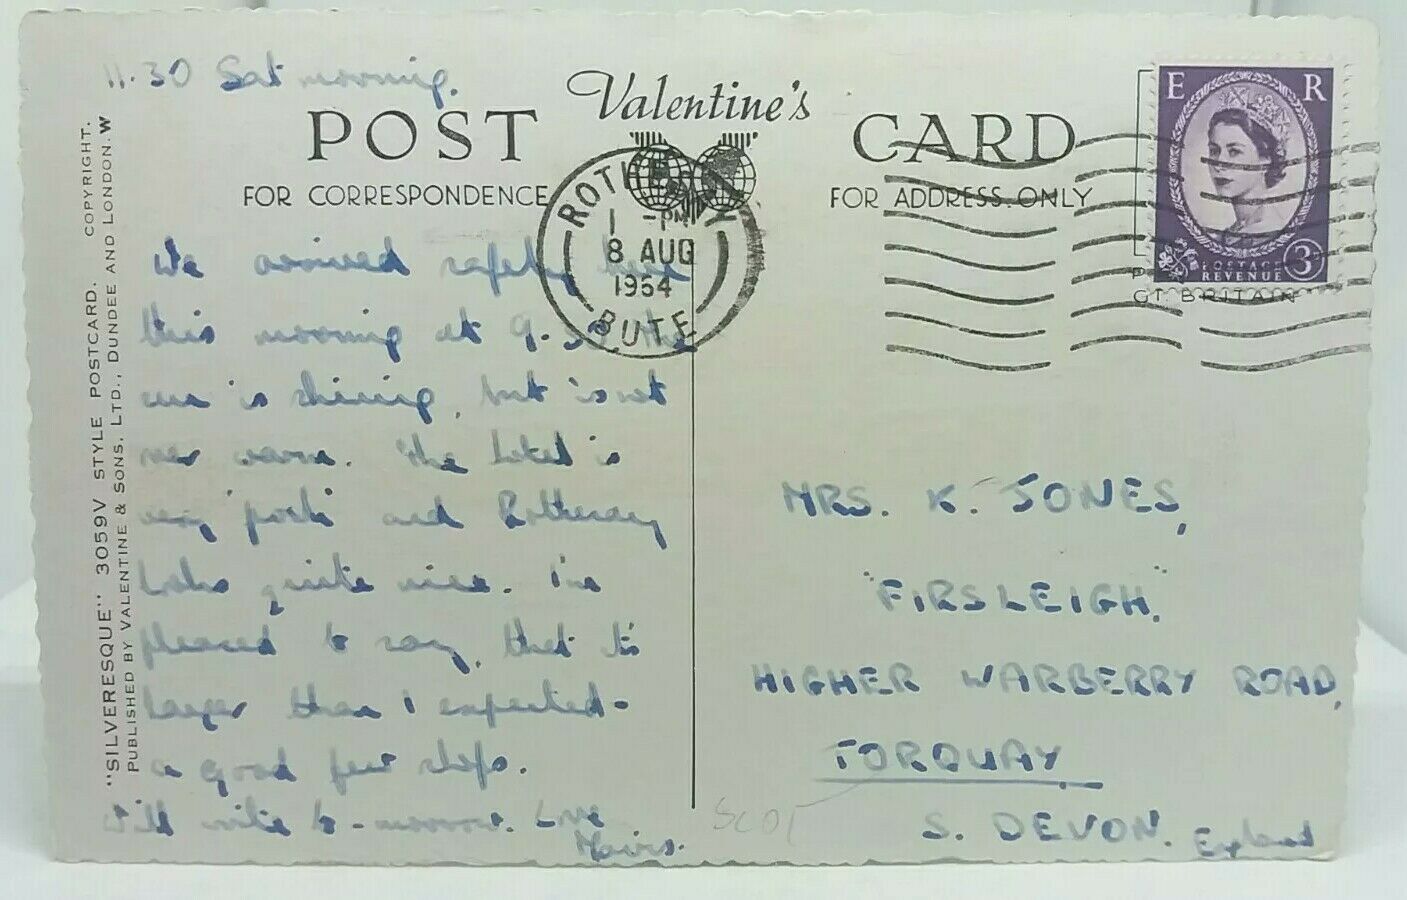 11.30 Sat morning.
Valentine's
POST CARD
FOR CORRESPONDENCE
FOR ADDRESS ONLY
We arrived safely here
this morning at 9.30, the
sun is shining, but is not
very warm. The hotel is
very posh and Rothesay
looks quite nice. I'm
pleased to say, that it's
larger than I expected -
a good few shops.
Will write to-morrow. Love
MRS. K. JONES,
"FIRSLEIGH."
HIGHER WARBERRY ROAD,
TORQUAY
S. DEVON. England
SCOT
E R
POSTAGE
REVENUE 3D
GT. BRITAIN
ROTHESAY
1 - PM
8 AUG
1964
BUTE
"SILVERESQUE" 3059V STYLE POSTCARD. COPYRIGHT.
PUBLISHED BY VALENTINE & SONS, LTD., DUNDEE AND LONDON. W